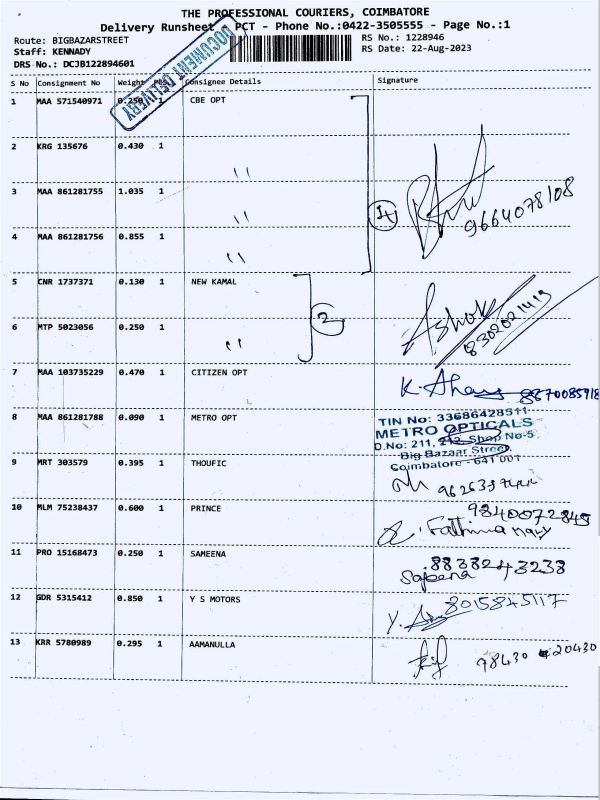 THE PROFESSIONAL COURIERS, COIMBATORE
Delivery Runsheet - PCT - Phone No.:0422-3505555 - Page No.:1
Route: BIGBAZARSTREET RS No.: 1228946
Staff: KENNADY RS Date: 22-Aug-2023
DRS No.: DCJB122894601
DOCUMENT DELIVERY
S No Consignment No Weight Pcs Consignee Details Signature
1 MAA 571540971 0.250 1 CBE OPT
2 KRG 135676 0.430 1 "
3 MAA 861281755 1.035 1 "
9664078108
4 MAA 861281756 0.855 1 "
5 CNR 1737371 0.130 1 NEW KAMAL
2 Ashok
6 MTP 5023056 0.250 1 " 8302021419
7 MAA 103735229 0.470 1 CITIZEN OPT
8870085918
8 MAA 861281788 0.090 1 METRO OPT
TIN No: 33686428511
METRO OPTICALS
D.No: 211, 212, Shop No-5
Big Bazaar Street,
Coimbatore - 641 001
9 MRT 303579 0.395 1 THOUFIC
10 MLM 75238437 0.600 1 PRINCE 9840072845
Fathima mary
11 PRO 15168473 0.250 1 SAMEENA 8838243238
Sajeena
12 GDR 5315412 0.850 1 Y S MOTORS 8015845117
13 KRR 5780989 0.295 1 AAMANULLA 98430 20430